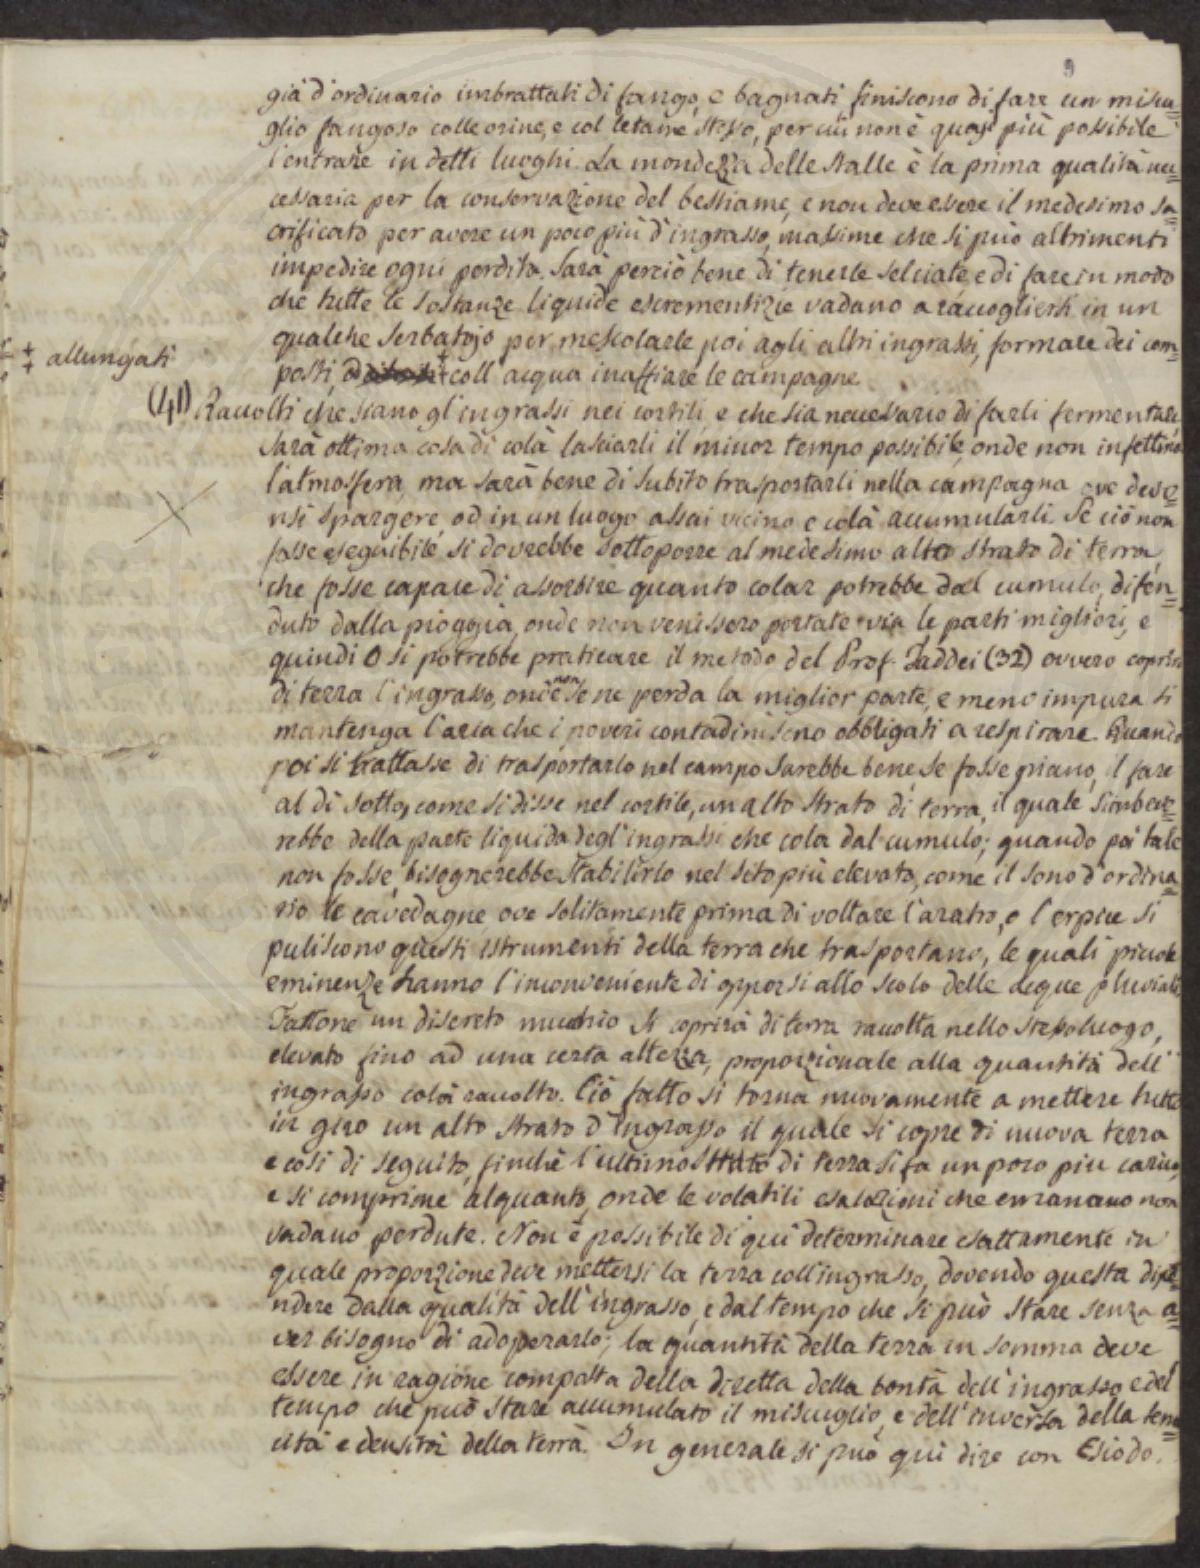 9
già d'ordinario imbrattati di fango, e bagnati finiscono di fare un miscu=
glio fangoso colle orine, e col letame stesso, per cui non è quasi più possibile
l'entrare in detti luoghi. La mondezza delle stalle è la prima qualità ne=
cessaria per la conservazione del bestiame, e non deve essere il medesimo sa=
crificato per avere un poco più d'ingrasso, massime che si può altrimenti
impedire ogni perdita. Sarà perciò bene di tenerle selciate e di fare in modo
che tutte le sostanze liquide escrementizie vadano a raccogliersi in un
qualche serbatojo per mescolarle poi agli altri ingrassi, formare dei com=
‡ allungati
posti, o + coll'acqua inaffiare le campagne.
(41) Raccolti che siano gl'ingrassi nei cortili, e che sia necessario di farli fermentare,
sarà ottima cosa di colà lasciarli il minor tempo possibile, onde non infettino
l'atmosfera, ma sarà bene di subito trasportarli nella campagna ove deve=
nsi spargere, od in un luogo assai vicino e colà accumularli. Se ciò non
fosse eseguibile, si dovrebbe sottoporre al medesimo alto strato di terra,
che fosse capace di assorbire quanto colar potrebbe dal cumulo, difen=
duto dalla pioggia, onde non venissero portate via le parti migliori, e
quindi o si potrebbe praticare il metodo del Prof. Taddei (32) ovvero coprire
di terra l'ingrasso, onde non se ne perda la miglior parte, e meno impura si
mantenga l'aria che i poveri contadini sono obbligati a respirare. Quando
poi si trattasse di trasportarlo nel campo sarebbe bene se fosse piano, il fare
al di sotto, come si disse nel cortile, un alto strato di terra, il quale s'imbeve=
rebbe della parte liquida degl'ingrassi che cola dal cumulo; quando poi tale
non fosse, bisognerebbe stabilirlo nel sito più elevato, come il sono d'ordina=
rio le cavedagne, ove solitamente prima di voltare l'aratro, o l'erpice si
puliscono questi istrumenti della terra che trasportano, le quali piccole
eminenze hanno l'inconveniente di opporsi allo scolo delle acque pluviali.
Fattone un discreto mucchio si coprirà di terra raccolta nello stesso luogo,
elevato fino ad una certa altezza, proporzionale alla quantità dell'
ingrasso colà raccolto. Ciò fatto si torna nuovamente a mettere tutto
in giro un alto strato d'ingrasso il quale si copre di nuova terra
e così di seguito, finchè l'ultimo strato di terra si fa un poco più carico,
e si comprime alquanto, onde le volatili esalazioni che emanano non
vadano perdute. Non è possibile di quì determinare esattamente in
quale proporzione deve mettersi la terra coll'ingrasso, dovendo questa dipe=
ndere dalla qualità dell'ingrasso, e dal tempo che si può stare senza a=
ver bisogno di adoperarlo; la quantità della terra in somma deve
essere in ragione composta della diretta della bontà dell'ingrasso e del
tempo che può stare accumulato il miscuglio, e dell'inversa della tena=
cità e densità della terra. In generale si può quì dire con Esiodo.